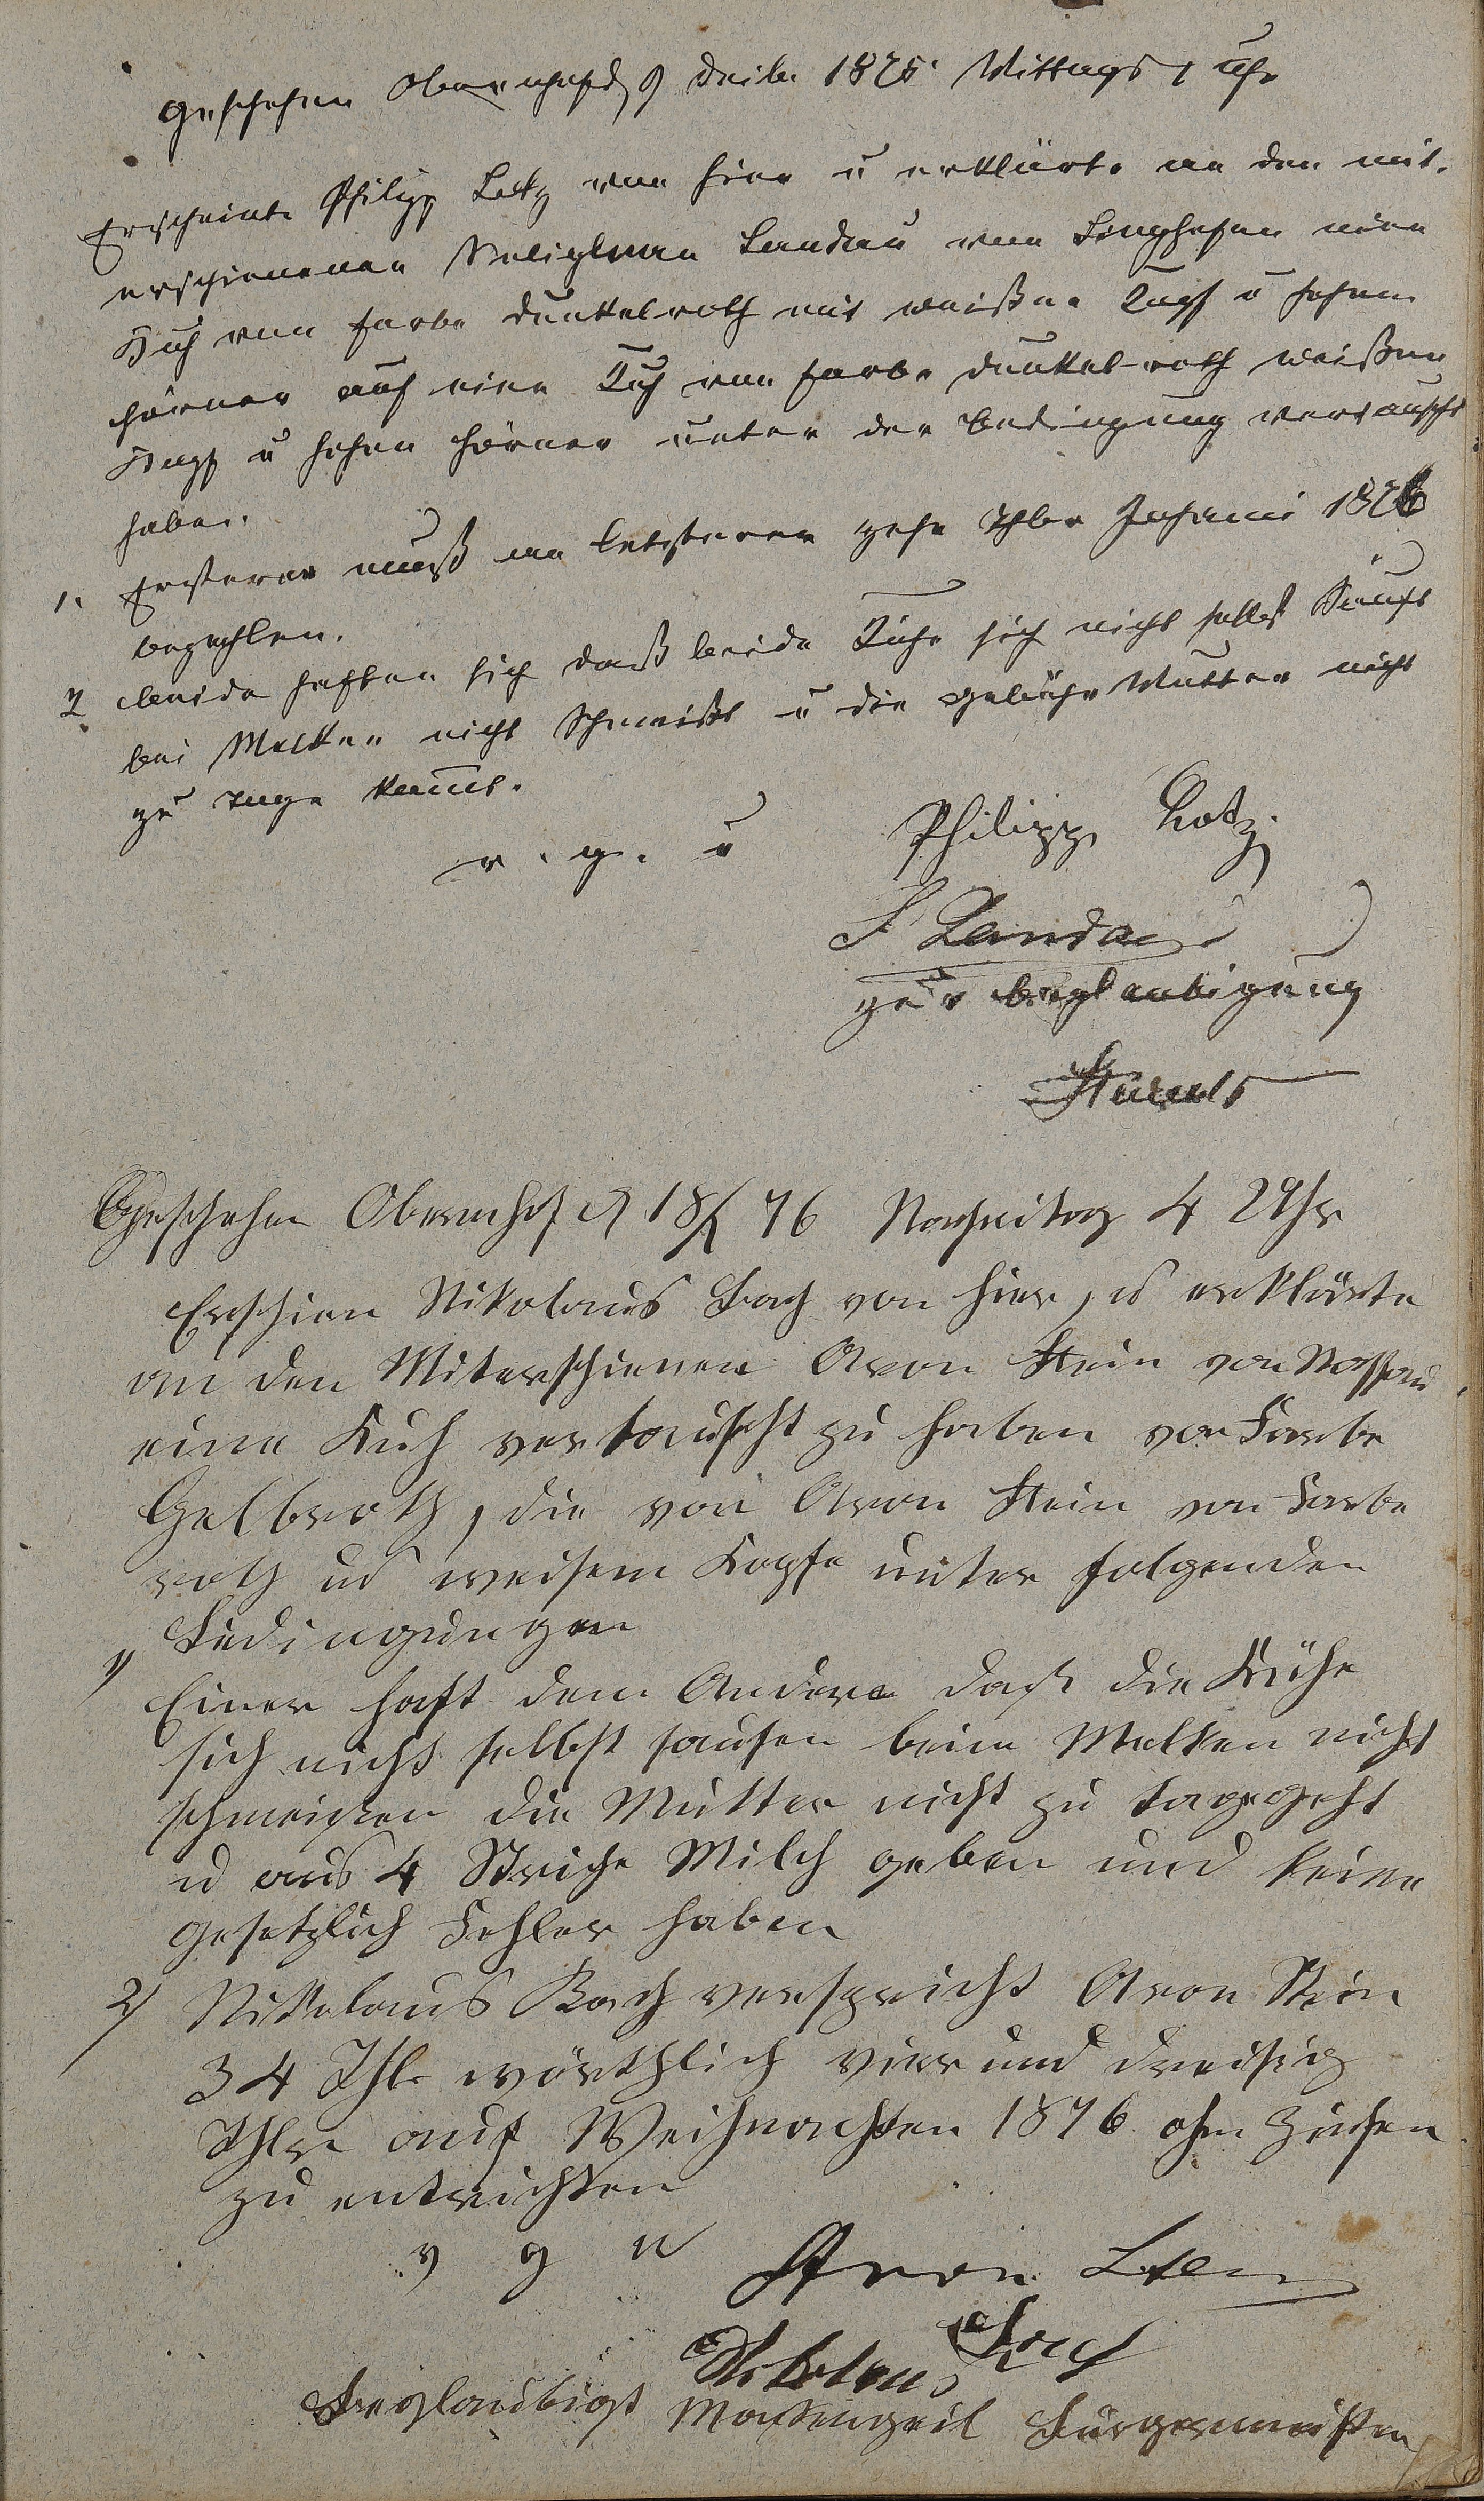 Geschehen Obernhof d 9 Deibr 1875 Mittags 1 Uhr
Erscheint Philipp Lotz von hier u erklärte an den mit-
erschienenen Seligmann Landau von Singhofen eine
Kuh von Farbe dunkelroth mit weißen Kopf u hohen
Hörner auf eine Kuh von Farbe dunkel-roth weißen
Kopf u hohen Hörner unter der Bedingung vertauscht
haben.
1. Ersterer muß an letzterer zehn Thlr Johanni 1876
bezahlen.
2 beide haften sich daß beide Kühe sich nicht selbst Säuft
bei Melken nicht Schmeißt u die Gebähr Mutter nicht
zu tage kommt.
v. g. u
Philipp Lotz
S Landau
zur beglaubigung
Geschehen Obernhof d 18/1 76 Nachmitag 4 Uhr
Erschien Nikolaus Bach von hier, u erklärte
an den Miterschienen Aron Stein von Nassau
eine Kuh vertauscht zu haben von Farbe
Gelbroth, die von Aron Stein von Farbe
roth ud weisem Kopfe unter folgenden
Bedingungen
1) Einer haft dem Andern daß die Kühe
sich nicht selbst saufen beim Melken nicht
schmeissen die Mutter nicht zu tage geht
ud aus 4 Striche Milch geben und keine
gesetzlich Fehler haben
2) Nikolaus Bach verspricht Aron Stein
34 Thlr wörthlich vier und dreisig
Thlr auf Weihnachten 1876 ohne Zinsen
zu entrichten
v g u Aron Stein
Nikolaus Bach
Beglaubigt Massengeil Bürgermeister